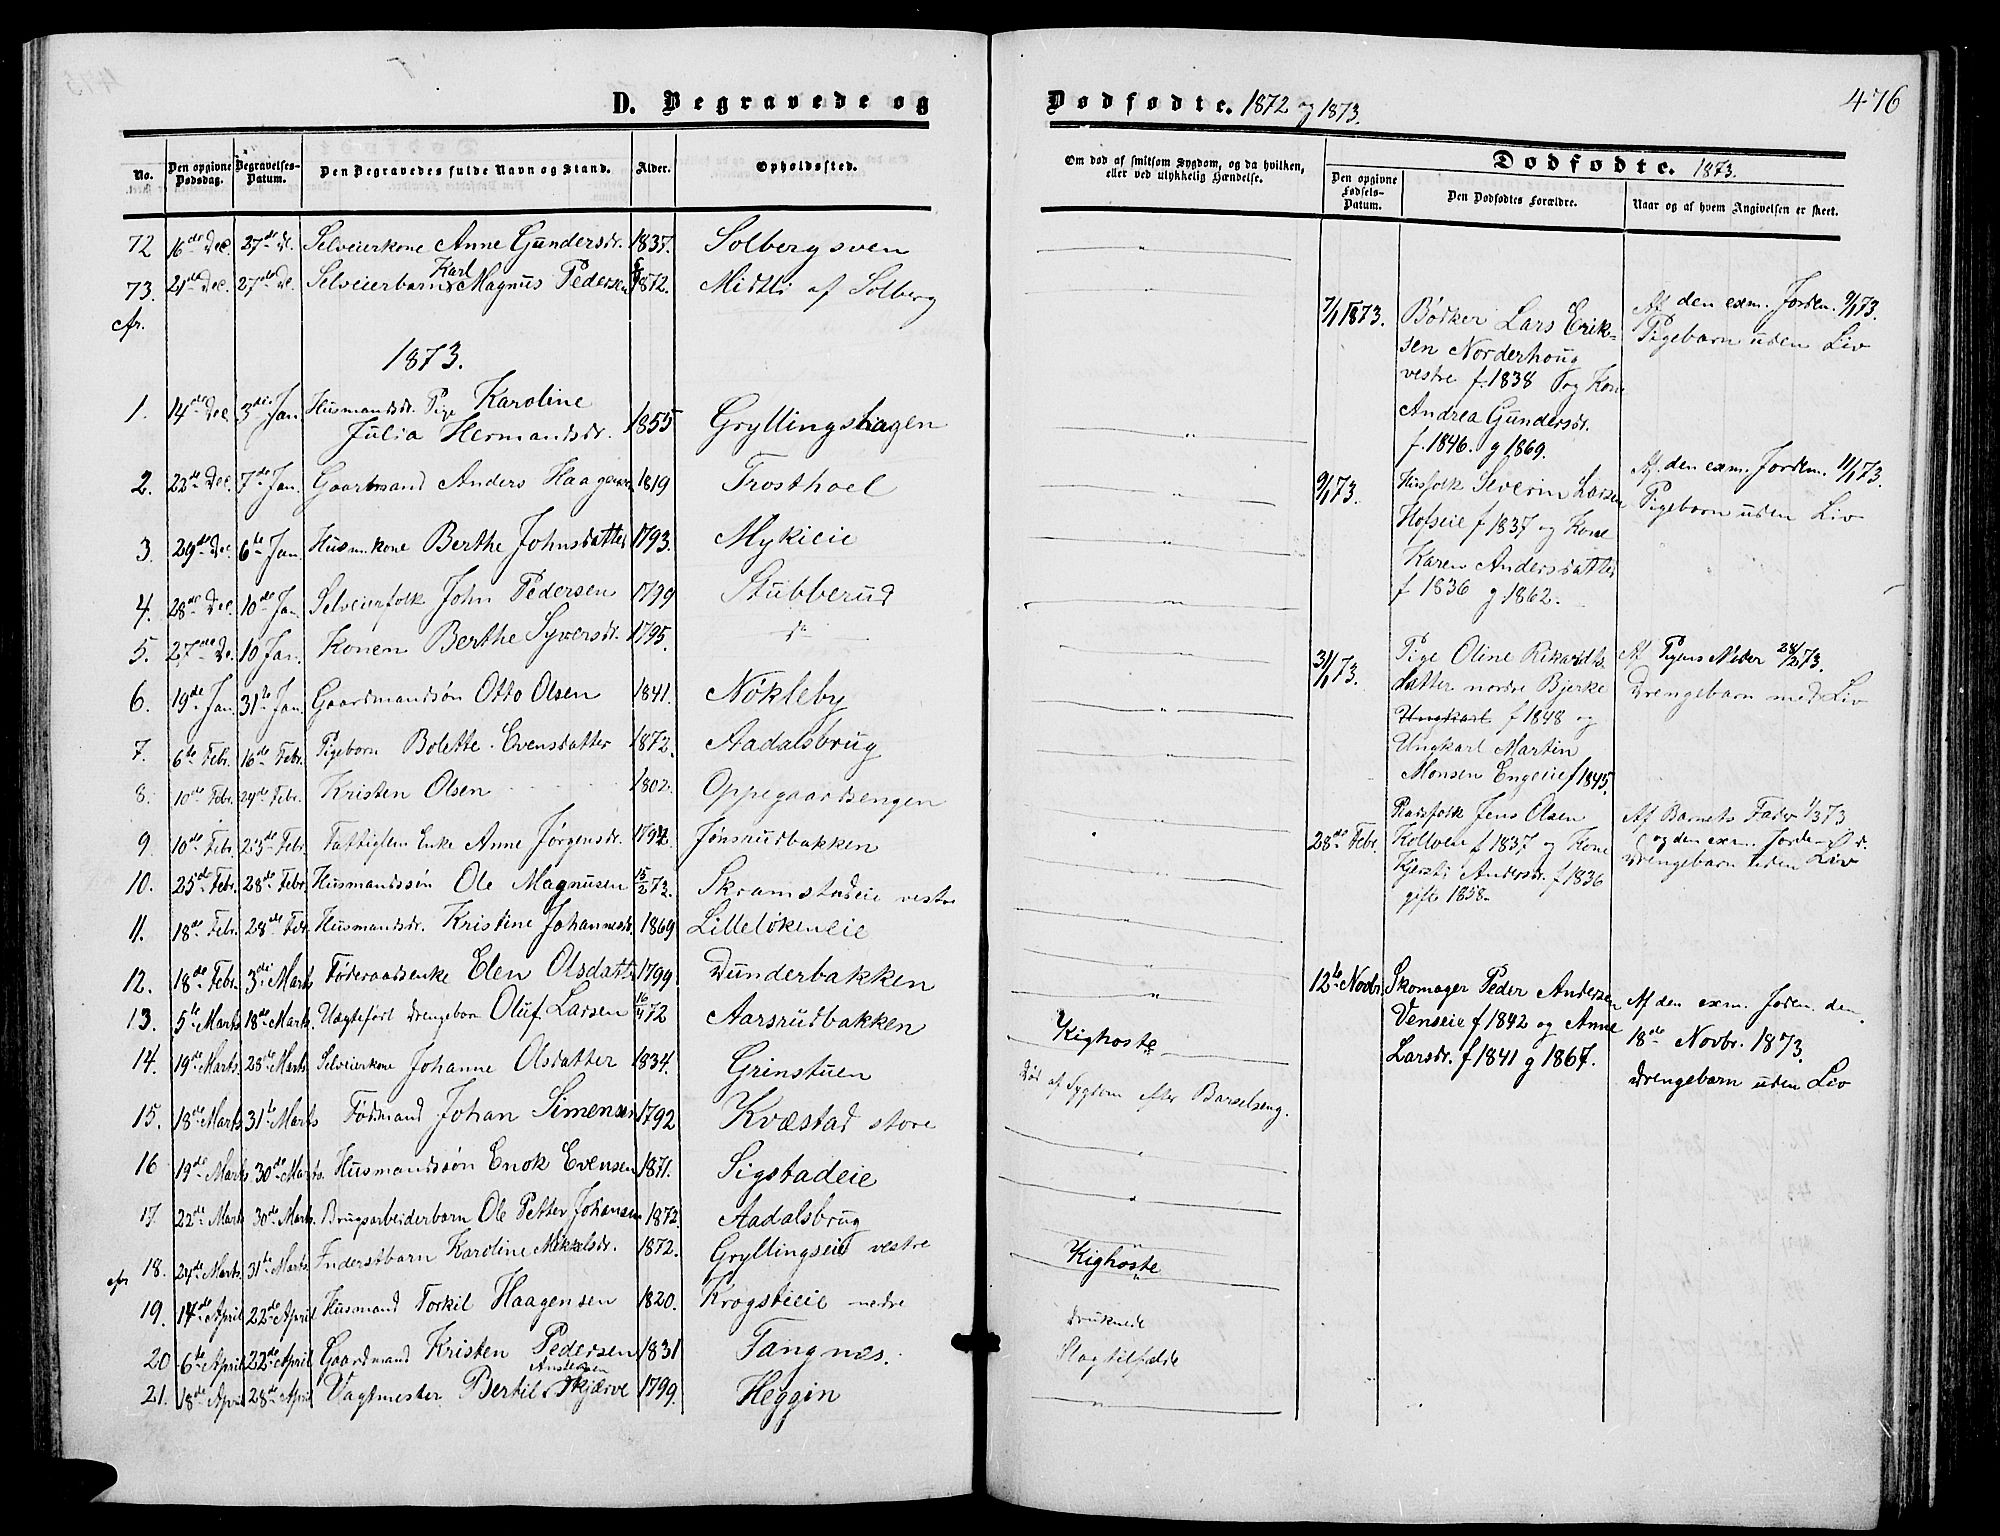 D. Begravede og
No.
Den opgivne Dødsdag.
Begravelses-Datum.
Den Begravedes fulde Navn og Stand.
Alder.
Opholdssted.
72 16de Dec. 27de D. Selveierkone Anne Gundersdr. 1837. Solbergsven
73. 21de Dec. 27de D. Selveierbarn Karl Magnus Pedersen 1872. Midtli af Solberg
1873.
1. 14de Dec 3die Jan Husmandsdr. Pige Karoline
Julia Hermandsdr. 1855 Gryllingshagen
2. 22de Dec. 7de Jan. Gaardmand Anders Haagensen 1819 Frosthoel
3. 29de Dec. 6te Jan Husm.kone Berthe Johnsdatter 1793. Mykieie
4. 28de Dec. 10de Jan. Selveierfolk John Pedersen 1799 Stubberud
5. 27de De. 10 Jan. Konen Berthe Syversdr. 1795. do
6. 19de Jan. 31te Jan. Gaardmandsøn Otto Olsen 1841. Nøkleby
7. 6te Febr. 16de Febr. Pigebarn Bolette Evensdatter 1872. Aadalsbrug
8. 10de Febr. 24de Febr. Kristen Olsen 1802. Oppegaardsengen
9. 10de Febr. 23de Febr. Fattiglem Enke Anne Jørgensdr. 1792. Jønsrudbakken
10. 25de Febr. 28de Febr. Husmandssøn Ole Magnusen 15/2 73. Skramstadeie vestre
11. 18de Febr. 28de Febr. Husmandsdr. Kristine Johannesdr. 1869 Lilleløkeneie
12. 18de Febr. 3die Marts Føderaadsenke Elen Olsdatter 1799 Dunderbakken
13. 5te Marts 18de Marts. Uægteført drengebarn Oluf Larsen 16/4 72 Aarsrudbakken
14. 19de Marts. 28de Marts Selveierkone Johanne Olsdatter 1834. Grinstuen
15. 18de Marts. 31te Marts Fødmand Johan Simensen 1792 Kvæstad store
16 19de Marts 30de Marts. Husmandssøn Enok Evensen 1871. Sigstadeie
17. 22de Marts 30de Marts. Brugsarbeiderbarn Ole Petter Johansen 1872. Aadalsbrug
18. 24de Marts. 31te Marts. Inderstbarn Karoline Mikkelsdr. 1872. Gryllingseie vestre
19. 14de April 22de April Husmand Torkil Haagensen 1820. Krogstieie nedre
20 6te April 22de April Gaardmand Kristen Pedersen 1831 Tangnes.
21. 18de April 28de April Vagtmester Bertil Andersen Skjærve 1799. Heggin
Dødfødte. 1872 og 1873.
476
Om død af smitsom Sygdom, og da hvilken, eller ved ulykkelig Hændelse.
Dødfødte. 1873.
Den opgivne Fødsels-Datum.
Den Dødfødtes Forældre.
Naar og af hvem Angivelsen er skeet.
Kighoste
Død af Sygdom efter Barselseng.
Kighoste
Druknede
Slagtilfælde
7/1 1873. Bødker Lars Erik-
sen Norderhoug
vestre f. 1838 og Kone
Andrea Gundersdr.
f. 1846. g 1869.
Af den exm. Jordem. 9/1 73.
Pigebarn uden Liv
9/1 73. Husfolk Severin Larsen
Hofseie f 1837 og Kone
Karen Andersdatter
f 1836 g 1862.
Af den exm. Jordem. 11/1 73.
Pigebarn uden Liv
31/1 73. Pige Oline Rikardts
datter nordre Bjerke
Ungkarl f 1848 og
Ungkarl Martin
Monsen Engeeie f 1845.
Af Pigens Moder 28/2 73.
Drengebarn med Liv
28de Febr. Jens Olsen
Kollven f 1837 og Kone
Kjersti Andersdr. f 1836
gift 1858.
Af Barnets Fader 1/3 73
og den exm. Jordem.
Drengebarn uden Liv
12te Novbr. Skomager Peder Andersen
Venseie f 1842 og Anne
Larsdr. f 1841 g 1867.
Af den exm. Jordem. den
18de Novbr. 1873.
Drengebarn uden Liv